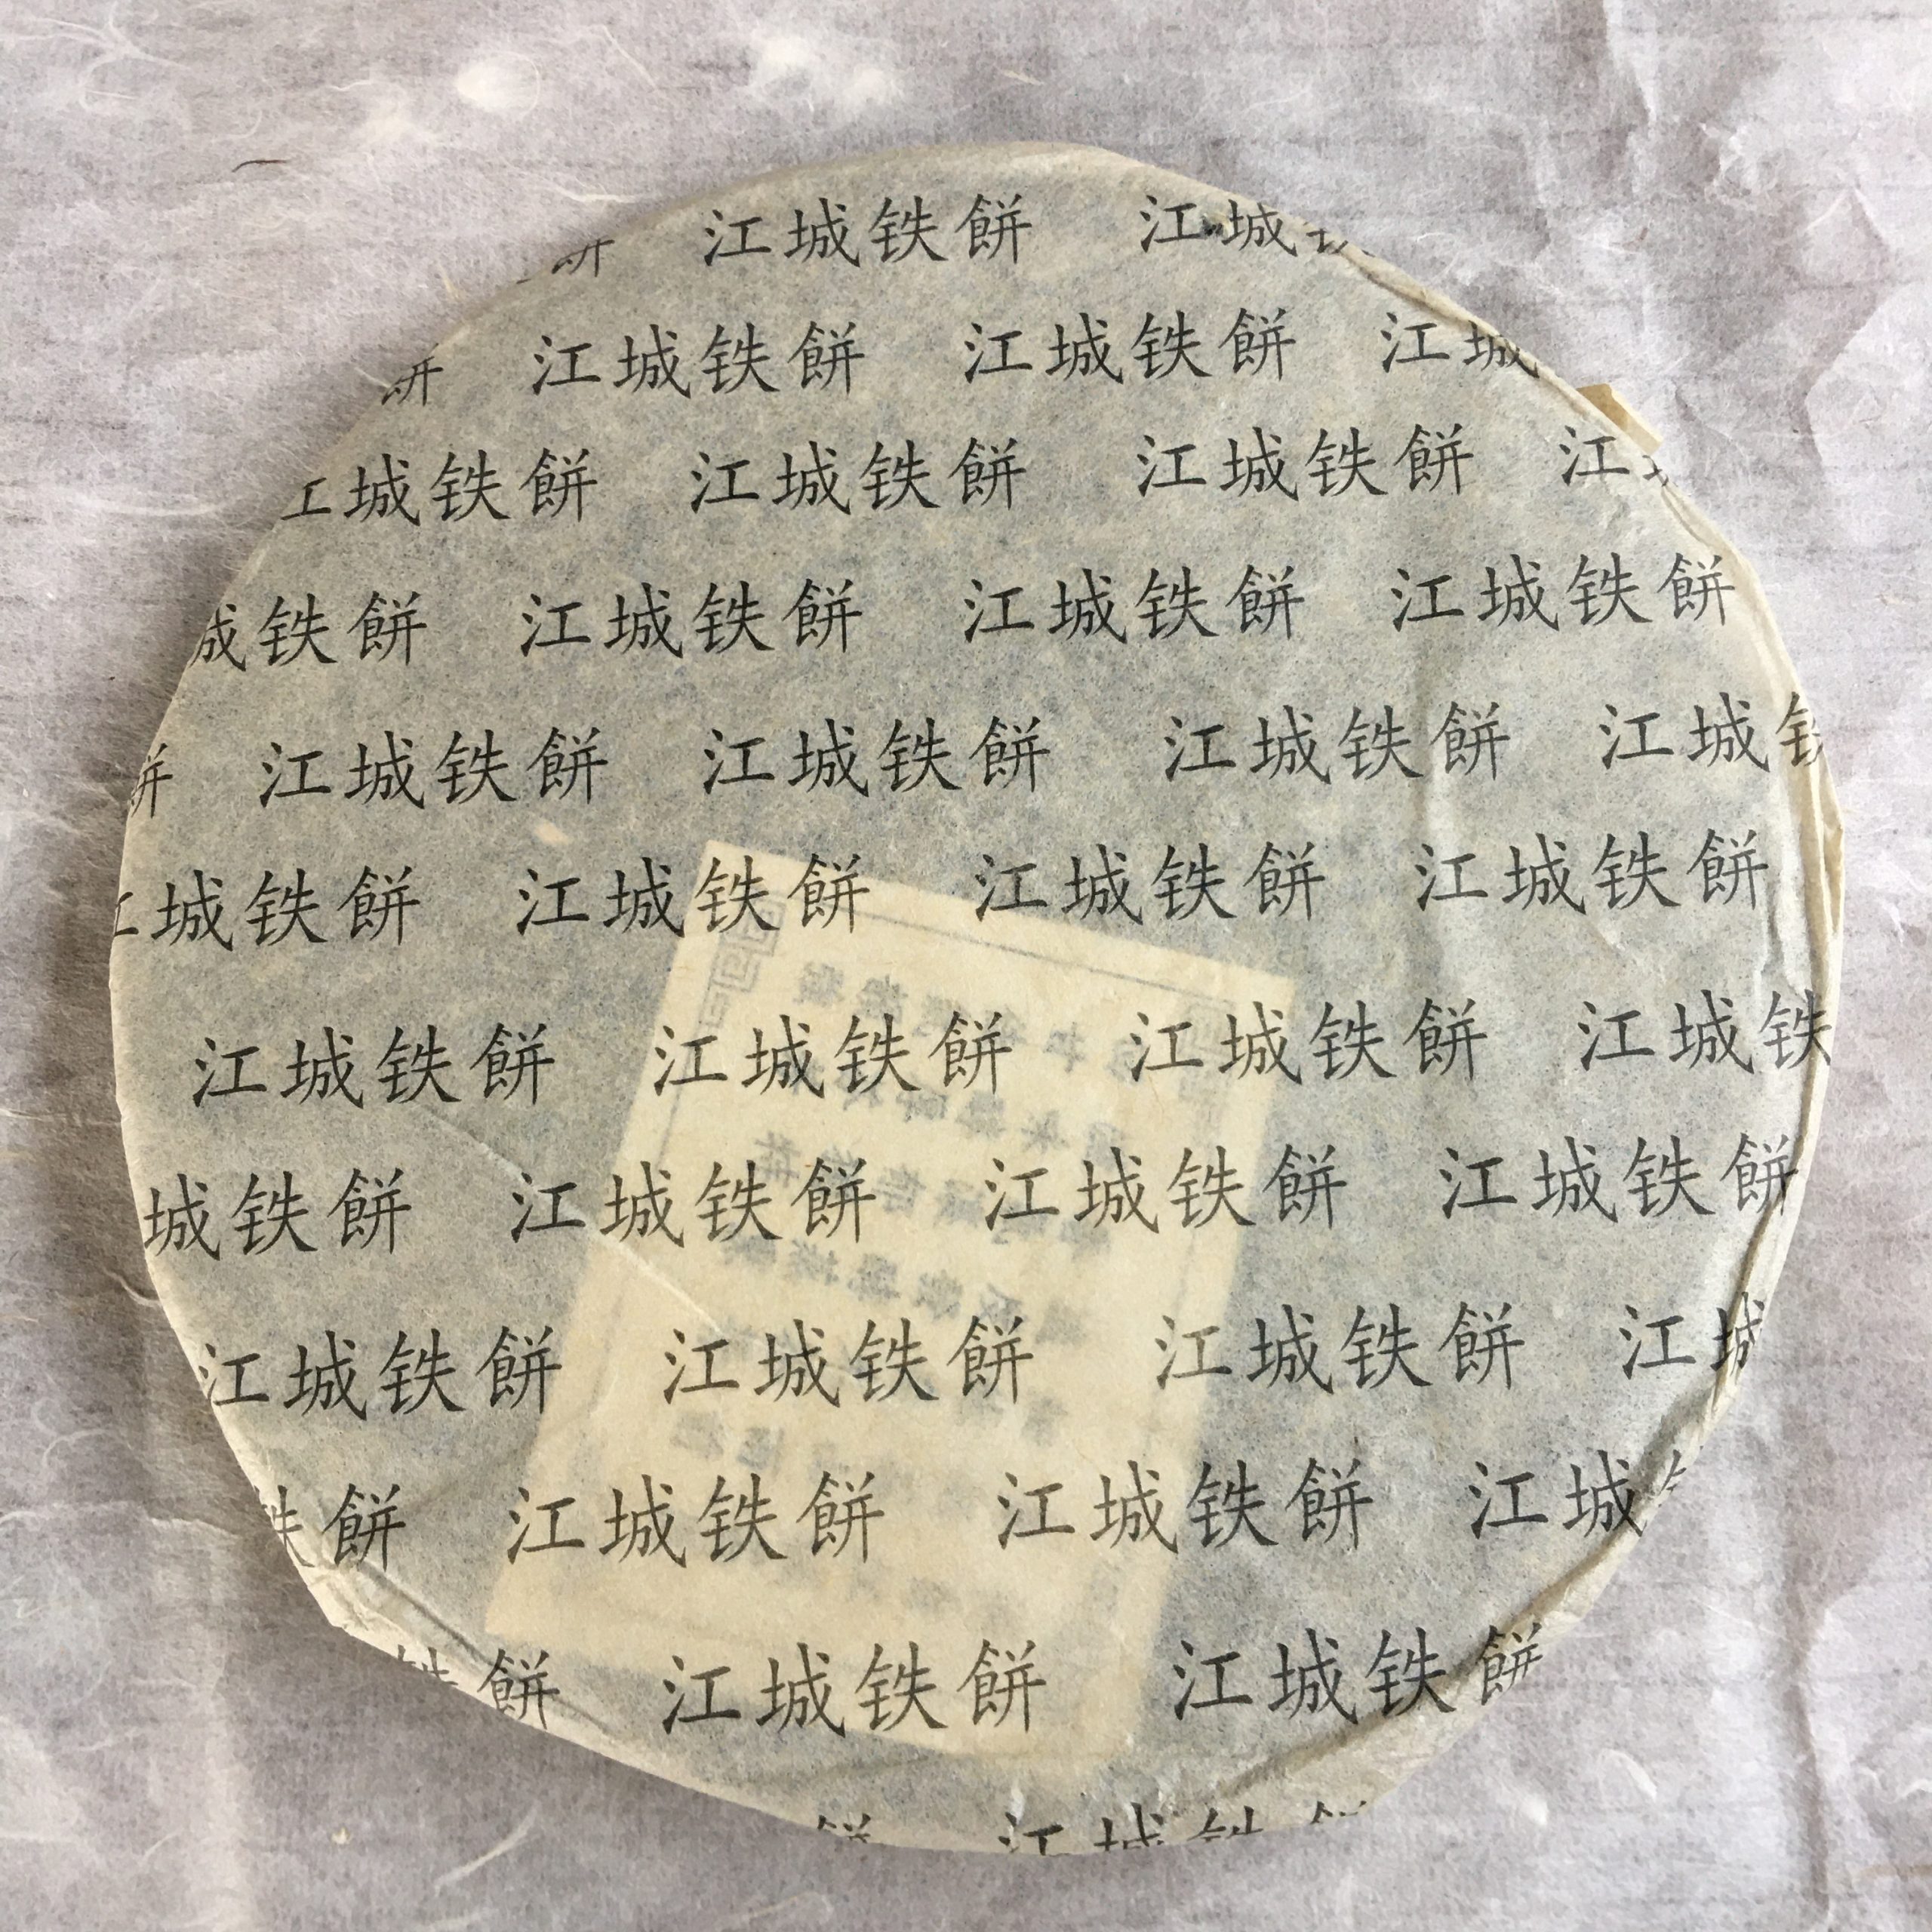 餅 江城铁餅 江城
餅 江城铁餅 江城铁餅 江城
江城铁餅 江城铁餅 江城铁餅 江
城铁餅 江城铁餅 江城铁餅 江城铁餅
餅 江城铁餅 江城铁餅 江城铁餅 江城铁
江城铁餅 江城铁餅 江城铁餅 江城铁餅
江城铁餅 江城铁餅 江城铁餅 江城铁
城铁餅 江城铁餅 江城铁餅 江城铁餅
江城铁餅 江城铁餅 江城铁餅 江城
铁餅 江城铁餅 江城铁餅 江城
铁餅 江城铁餅 江城铁餅
餅 江城铁餅